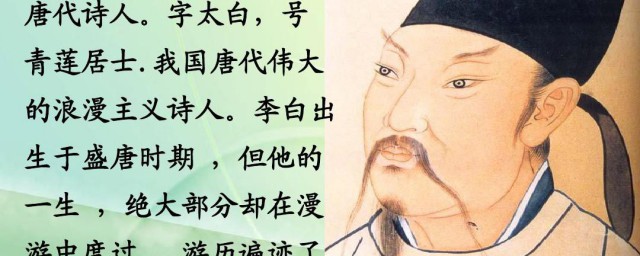 唐代诗人。字太白，号
青莲居士.我国唐代伟大
的浪漫主义诗人。李白出
生于盛唐时期 ，但他的
一生 ，绝大部分却在漫
游中度过 游历遍迹了